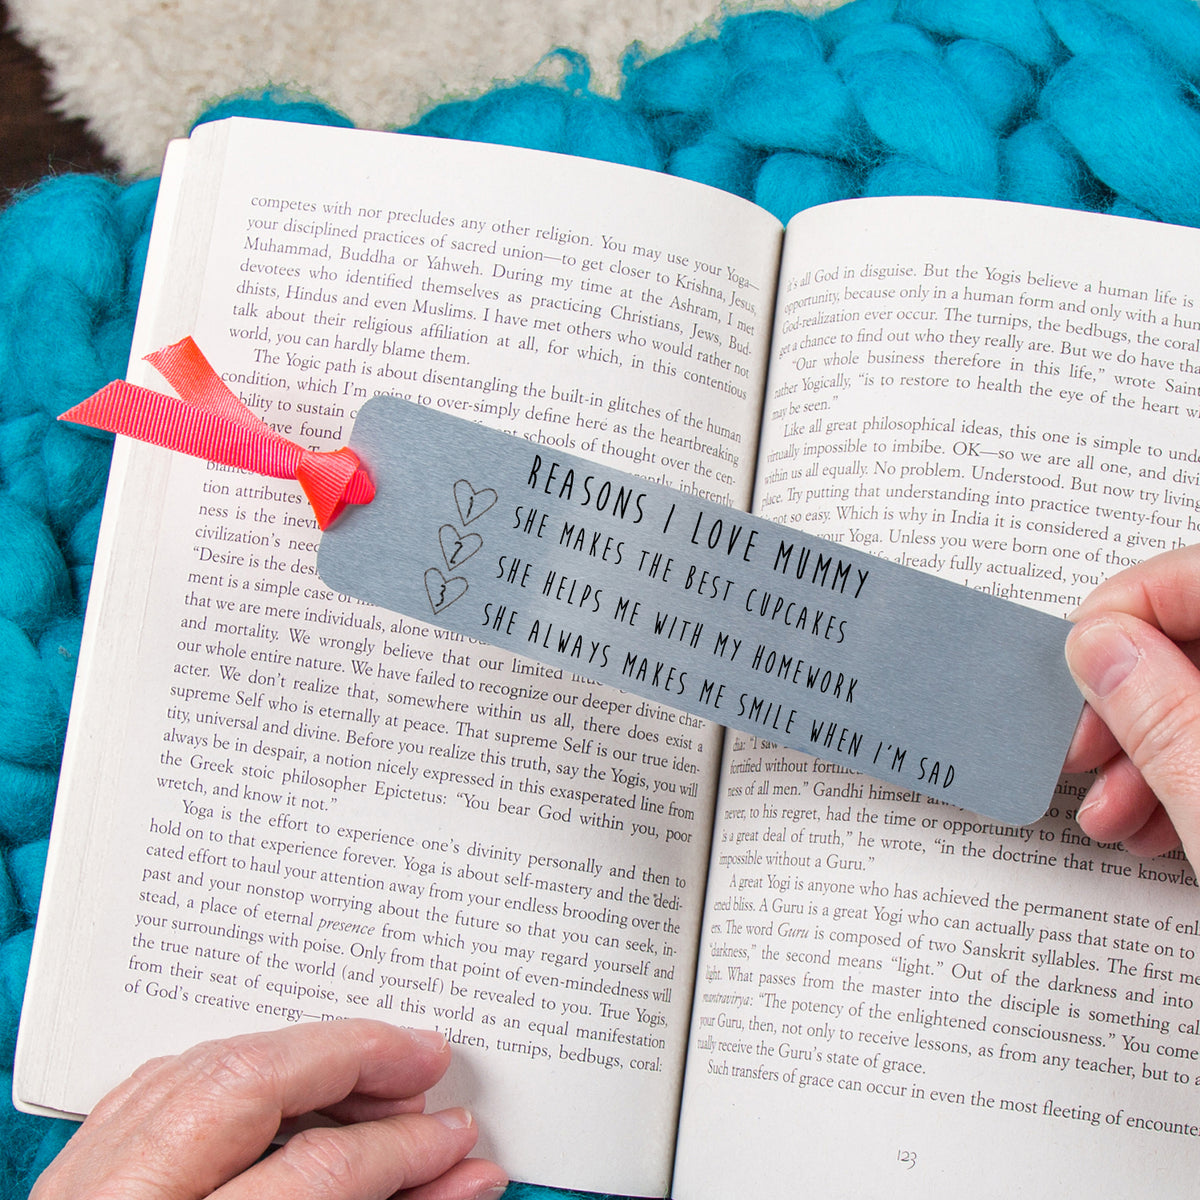 competes with nor precludes any other religion. You may use your Yoga—
your disciplined practices of sacred union—to get closer to Krishna, Jesus,
Muhammad, Buddha or Yahweh. During my time at the Ashram, I met
devotees who identified themselves as practicing Christians, Jews, Bud-
dhists, Hindus and even Muslims. I have met others who would rather not
talk about their religious affiliation at all, for which, in this contentious
world, you can hardly blame them.
The Yogic path is about disentangling the built-in glitches of the human
condition, which I'm going to over-simply define here as the heartbreaking
bility to sustain schools of thought over the cen-
have found inherently
tion attributes
ness is the inevi
civilization's need
"Desire is the des
ment is a simple case of
that we are mere individuals, alone with
and mortality. We wrongly believe that our limited little
our whole entire nature. We have failed to recognize our deeper divine char-
acter. We don't realize that, somewhere within us all, there does exist a
supreme Self who is eternally at peace. That supreme Self is our true iden-
tity, universal and divine. Before you realize this truth, say the Yogis, you will
always be in despair, a notion nicely expressed in this exasperated line from
the Greek stoic philosopher Epictetus: "You bear God within you, poor
wretch, and know it not."
Yoga is the effort to experience one's divinity personally and then to
hold on to that experience forever. Yoga is about self-mastery and the dedi-
cated effort to haul your attention away from your endless brooding over the
past and your nonstop worrying about the future so that you can seek, in-
stead, a place of eternal presence from which you may regard yourself and
your surroundings with poise. Only from that point of even-mindedness will
the true nature of the world (and yourself) be revealed to you. True Yogis,
from their seat of equipoise, see all this world as an equal manifestation
of God's creative energy—men, children, turnips, bedbugs, coral:
REASONS I LOVE MUMMY
1 SHE MAKES THE BEST CUPCAKES
2 SHE HELPS ME WITH MY HOMEWORK
3 SHE ALWAYS MAKES ME SMILE WHEN I'M SAD
it's all God in disguise. But the Yogis believe a human life is
opportunity, because only in a human form and only with a hum
God-realization ever occur. The turnips, the bedbugs, the coral
get a chance to find out who they really are. But we do have tha
"Our whole business therefore in this life," wrote Sain
rather Yogically, "is to restore to health the eye of the heart w
may be seen."
Like all great philosophical ideas, this one is simple to unde
virtually impossible to imbibe. OK—so we are all one, and divi
within us all equally. No problem. Understood. But now try living
place. Try putting that understanding into practice twenty-four h
not so easy. Which is why in India it is considered a given th
your Yoga. Unless you were born one of those
already fully actualized, you'
enlightenment
dia: "I saw
fortified without fortific
ness of all men." Gandhi himself
never, to his regret, had the time or opportunity to find one.
is a great deal of truth," he wrote, "in the doctrine that true knowle
impossible without a Guru."
A great Yogi is anyone who has achieved the permanent state of enl
ened bliss. A Guru is a great Yogi who can actually pass that state on to
ers. The word Guru is composed of two Sanskrit syllables. The first m
"darkness," the second means "light." Out of the darkness and into
light. What passes from the master into the disciple is something cal
mantravirya: "The potency of the enlightened consciousness." You come
your Guru, then, not only to receive lessons, as from any teacher, but to a
tually receive the Guru's state of grace.
Such transfers of grace can occur in even the most fleeting of encounter
123